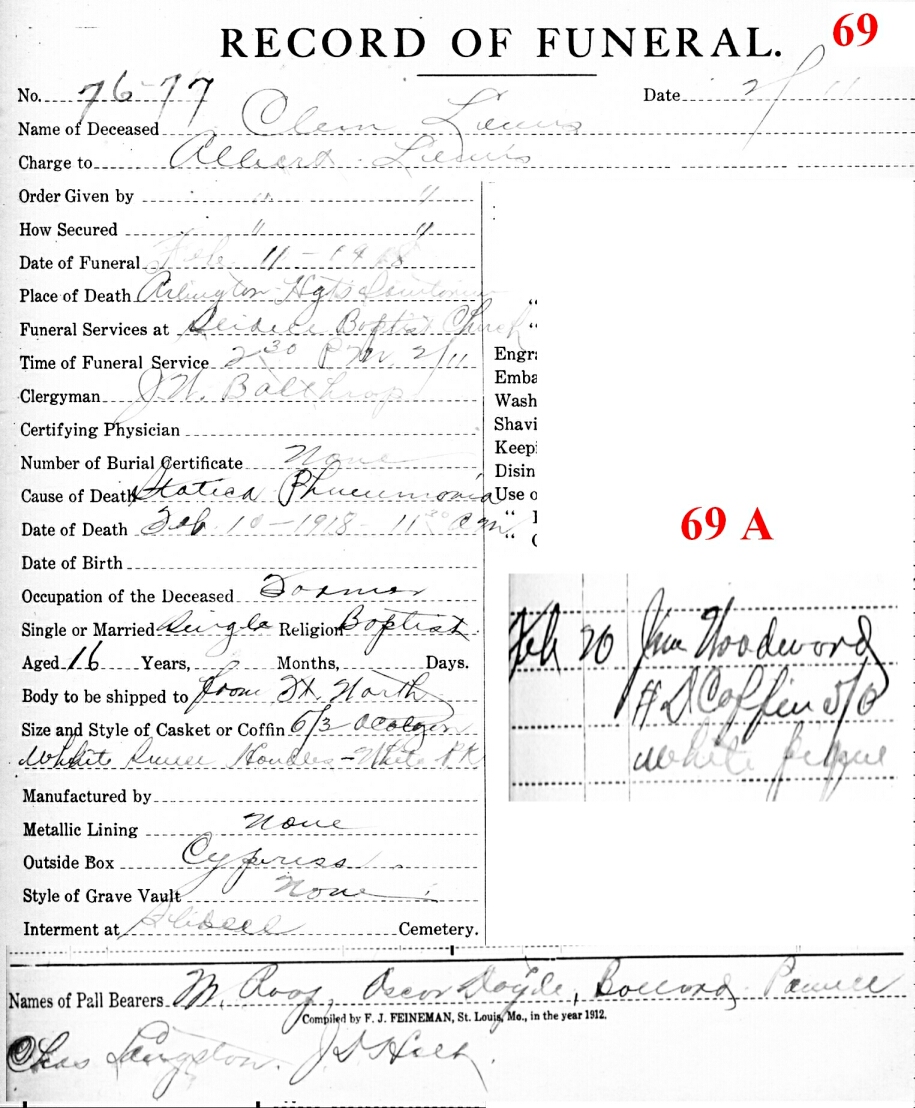 RECORD OF FUNERAL. 69
No. 76-77 Date 2/11
Name of Deceased Clem Lewis
Charge to Albert Lewis
Order Given by " "
How Secured " "
Date of Funeral Feb 11-1918
Place of Death Arlington Hgts Sanitorium
Funeral Services at Slidell Baptist Church "
Time of Funeral Service 2 30 P M. 2/11
Engr
Clergyman J W. Balthrop
Emba
Wash
Certifying Physician
Shavi
Keep
Number of Burial Certificate None
Disin
Cause of Death Pneumonia
Use o
Date of Death Feb 10-1918-11 a m
"
"
Date of Birth
69 A
Occupation of the Deceased Farmer
Single or Married Single Religion Baptist
Aged 16 Years, Months, Days.
Body to be shipped to from Ft. Worth
Size and Style of Casket or Coffin 6/3 Octagon
White Handles - White
Feb 20 Jim Woodword
Coffin 5/0
White
Manufactured by
Metallic Lining None
Outside Box Cypress
Style of Grave Vault None
Interment at Slidell Cemetery.
Names of Pall Bearers M. Roof, Oscar Doyle,
Compiled by F. J. FEINEMAN, St. Louis, Mo., in the year 1912.
Chas Langston. J D Holt.